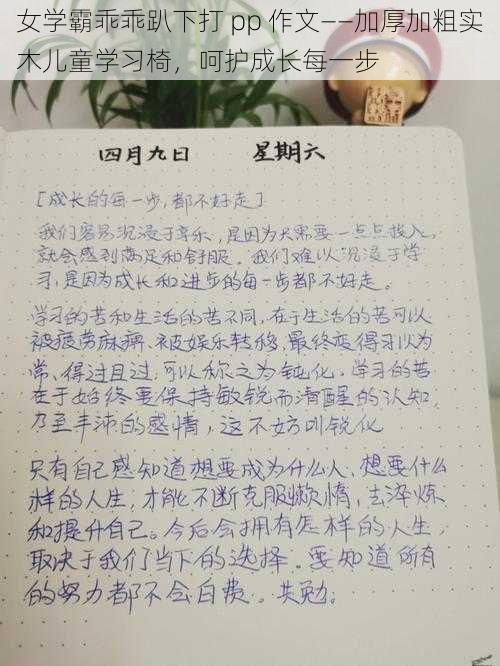 女学霸乖乖趴下打 pp 作文——加厚加粗实
木儿童学习椅，呵护成长每一步
四月九日 星期六
[成长的每一步,都不好走]
我们容易沉浸于享乐,是因为只需要一点点投入,
就会感到满足和舒服。我们难以沉浸于学
习,是因为成长和进步的每一步都不好走。
学习的苦和生活的苦不同,在于生活的苦可以
被疲劳麻痹、被娱乐转移,最终变得习以为
常、得过且过,可以称之为钝化。学习的苦
在于始终要保持敏锐而清醒的认知
乃至丰沛的感情,这不妨叫锐化
只有自己感知道想要成为什么人,想要什么
样的人生,才能不断克服懒惰,去淬炼
和提升自己。今后会拥有怎样的人生,
取决于我们当下的选择。要知道所有
的努力都不会白费。共勉。